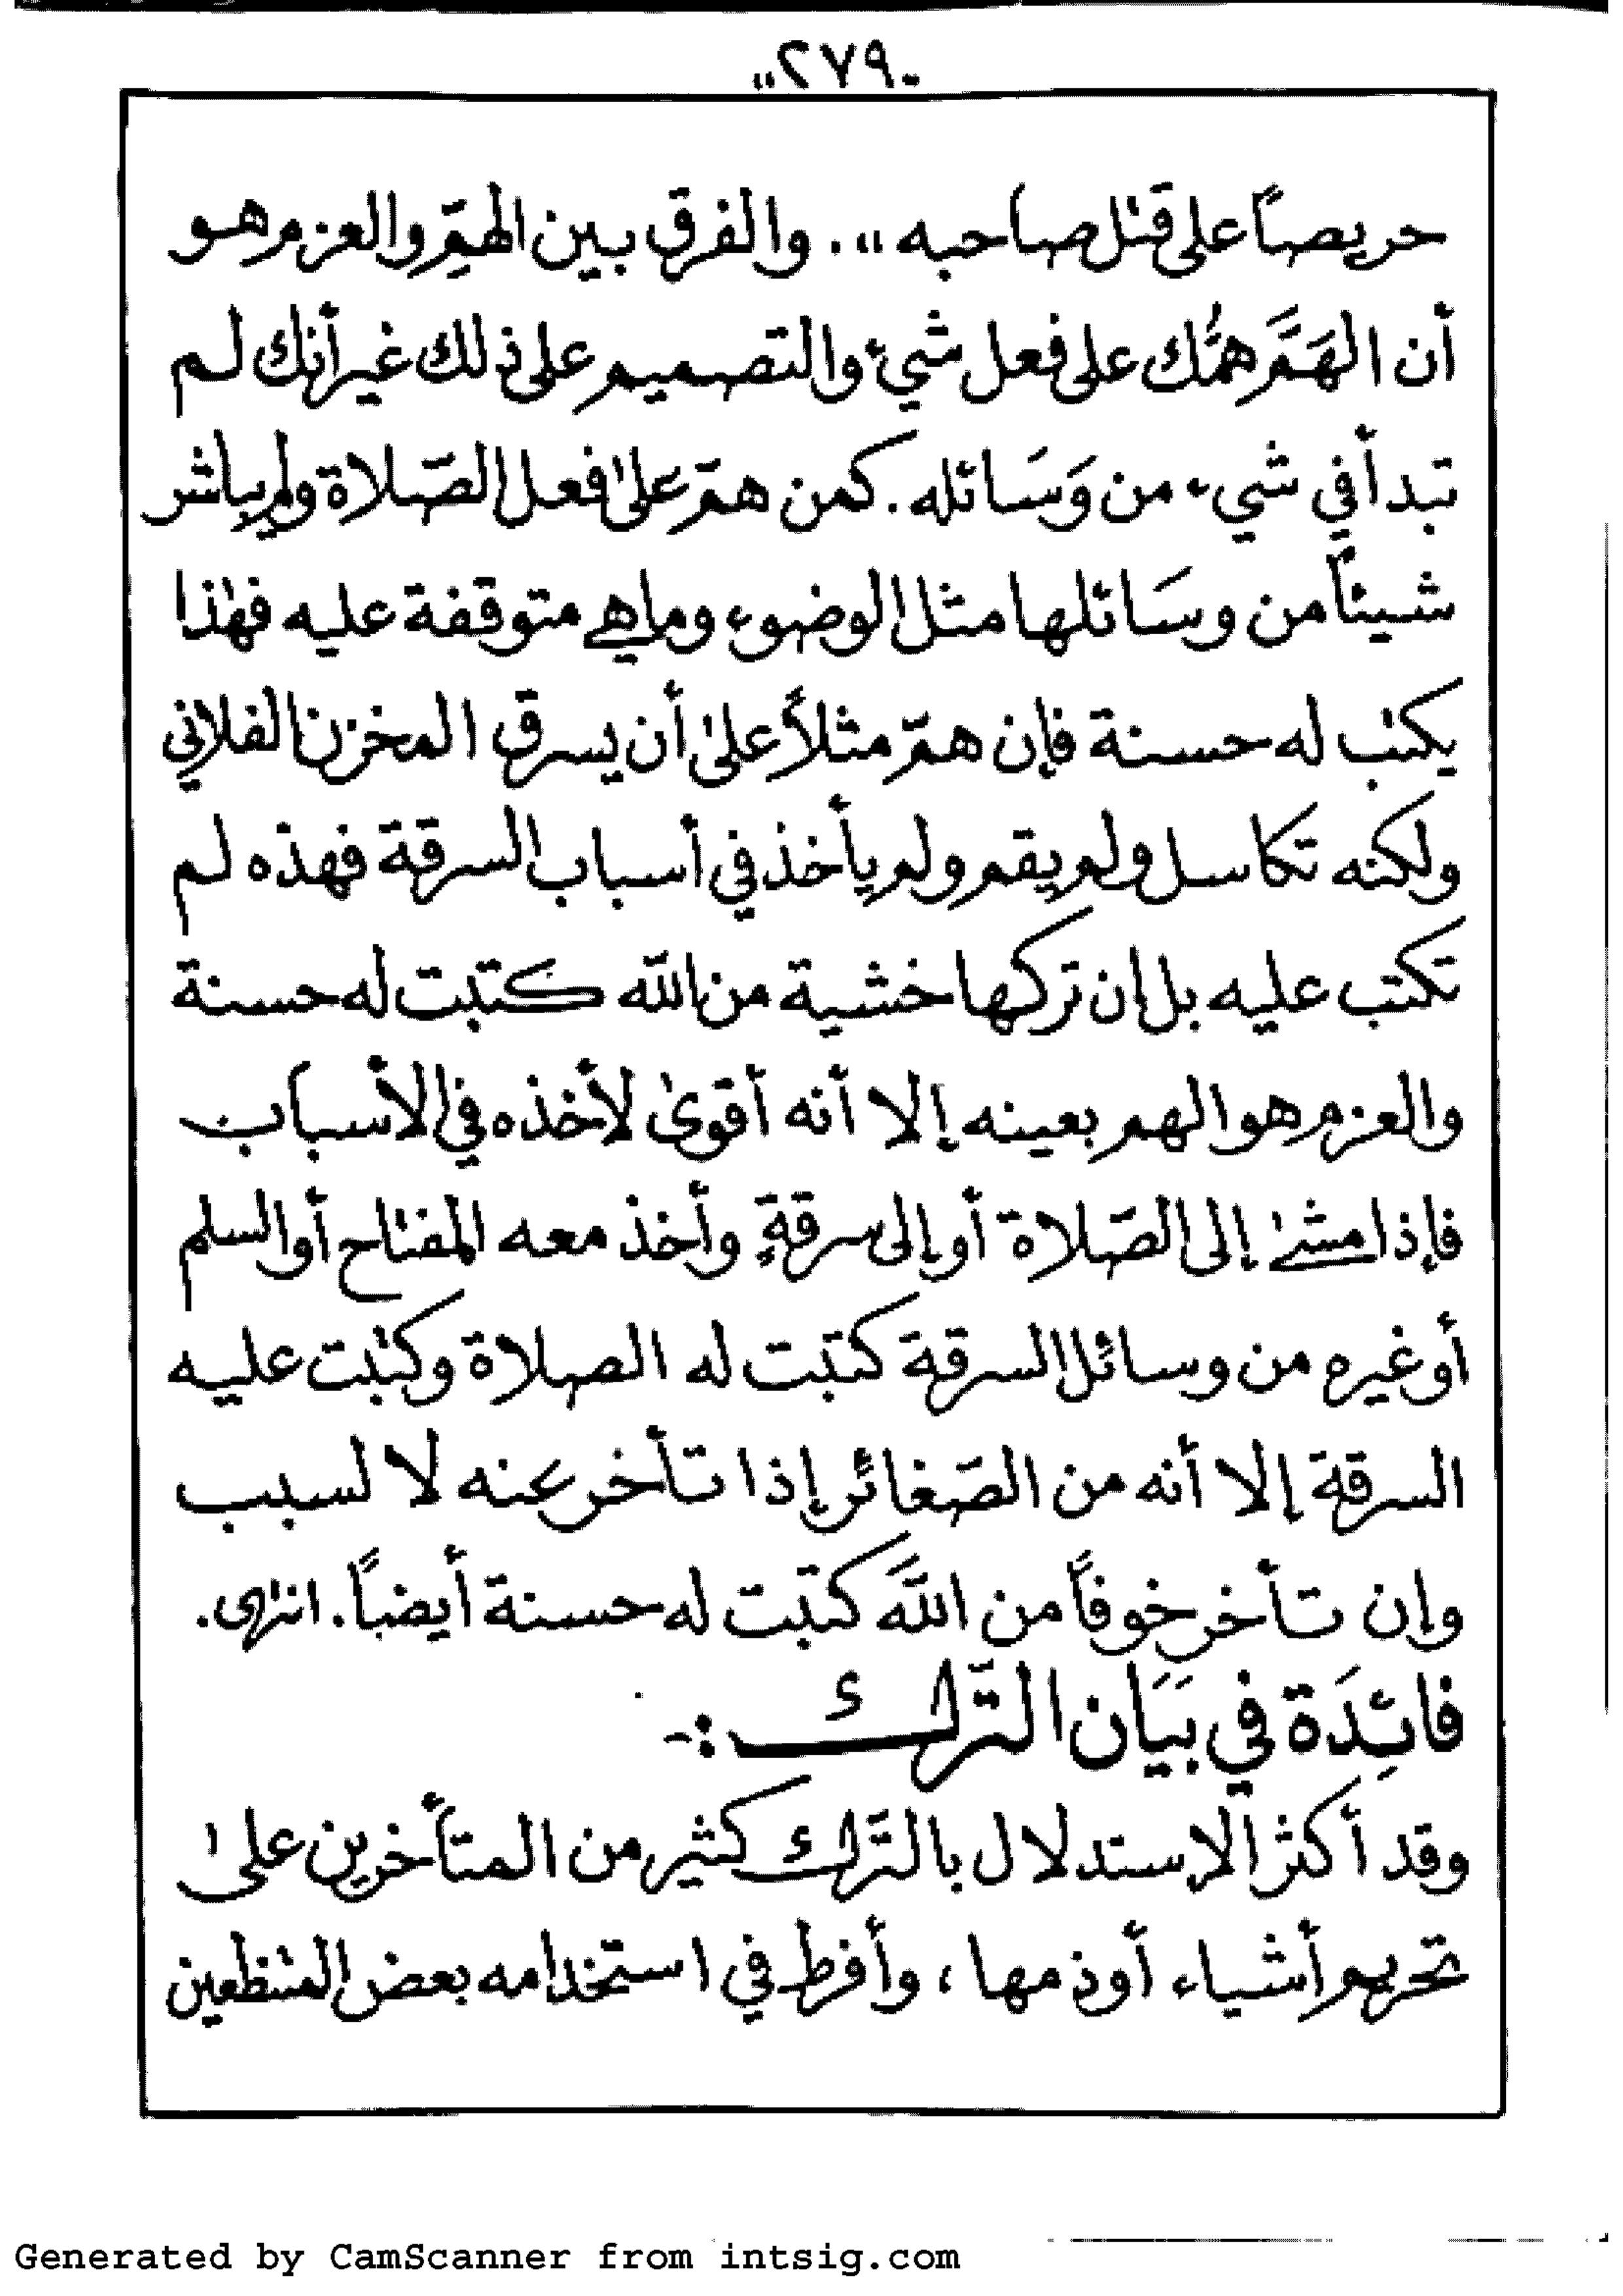 -٢٧٩-
حريصاً على قتل صاحبه ،، . والفرق بين الهمِّ والعزم هو
أن الهَمَّ همُّك على فعل شيء والتصميم على ذلك غير أنك لم
تبدأ في شيء من وَسَائله . كمن همّ عَلىٰ فعل الصّلاة ولم يباشر
شيئاً من وسَائلها مثل الوضوء وماهي متوقفة عليه فهٰذا
يكتب له حسنة فإن همّ مثلاً علىٰ أن يسرق المخزن الفلاني
ولكنه تكاسل ولم يقم ولم يأخذ في أسباب السرقة فهذه لم
تكتب عليه بل إن تركها خشية من الله كتبت له حسنة
والعزم هو الهم بعينه إلا أنه أقوىٰ لأخذه في الأسباب
فإذا مشىٰ إلى الصّلاة أو إلى سرقةٍ وأخذ معه المفتاح أو السلم
أو غيره من وسائل السرقة كتبت له الصلاة وكتبت عليه
السرقة إلا أنه من الصّغائر إذا تأخر عنه لا لسبب
وإن تأخر خوفاً من اللهَ كتبت له حسنة أيضاً . انتهى .
فائِدَة في بَيَان التّرك :-
وقد أكثر الإستدلال بالتّرك كثير من المتأخرين علىٰ
تحريم أشياء أو ذمها ، وأفرط في استخدامه بعض المتنطعين
Generated by CamScanner from intsig.com